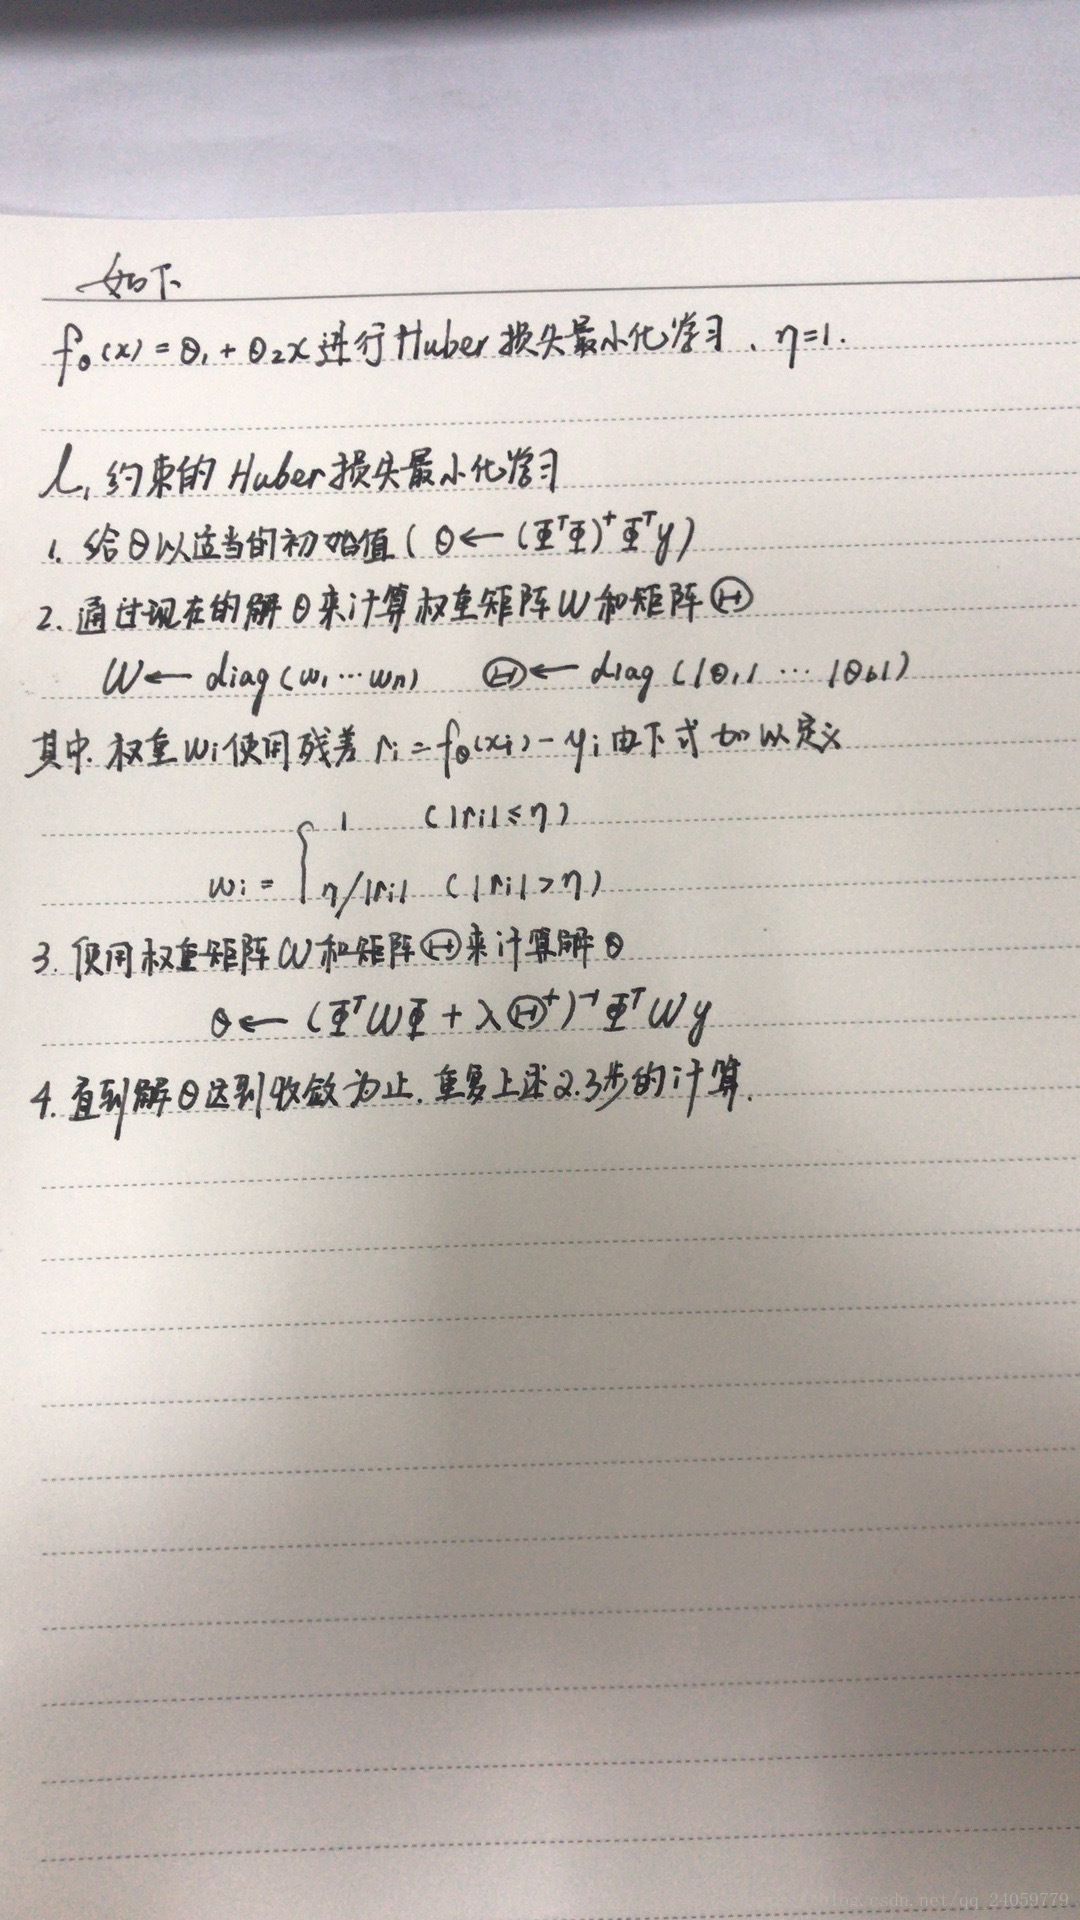 如下
f_θ(x) = θ₁ + θ₂x 进行Huber损失最小化学习、η=1.
ℓ₁约束的Huber损失最小化学习
1. 给θ以适当的初始值 ( θ ← (Φ^TΦ)^+ Φ^T y )
2. 通过现在的解θ来计算权重矩阵W和矩阵Θ
W ← diag(w₁ … wn) Θ ← diag (|θ₁| … |θb|)
其中.权重wi使用残差 ri = f_θ(xi) - yi 由下式加以定义
1 (|ri| ≤ η)
wi = {
η/|ri| (|ri| > η)
3. 使用权重矩阵W和矩阵Θ来计算解θ
θ ← (Φ^T WΦ + λΘ^+)^-1 Φ^T W y
4. 直到解θ达到收敛为止. 重复上述2.3步的计算.
blog.csdn.net/qq_24059779